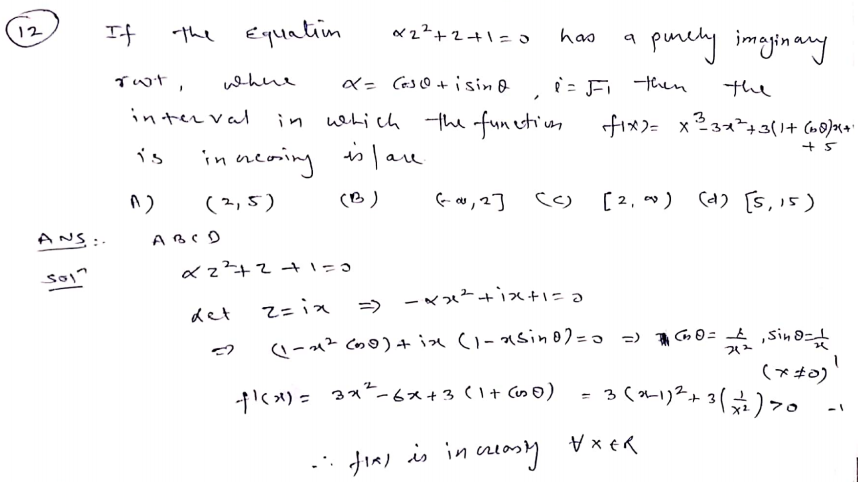 (12) If the Equation αz²+z+1=0 has a purely imaginary
root, where α = Cosθ + i sinθ, i = √-1 then the
interval in which the function f(x) = x³-3x²+3(1+Cosθ)x+
+5
is increasing is/are
A) (2,5) (B) (-∞,2] (C) [2,∞) (d) [5,15)
ANS :. A B C D
Solⁿ αz²+z+1=0
Let z=ix ⇒ -αx²+ix+1=0
⇒ (1-x² Cosθ)+ix(1-xsinθ)=0 ⇒ Cosθ = 1/x², Sinθ=1/x
(x≠0)
f'(x) = 3x²-6x+3(1+Cosθ) = 3(x-1)²+3(1/x²)>0
∴ f(x) is increasy ∀x∈R